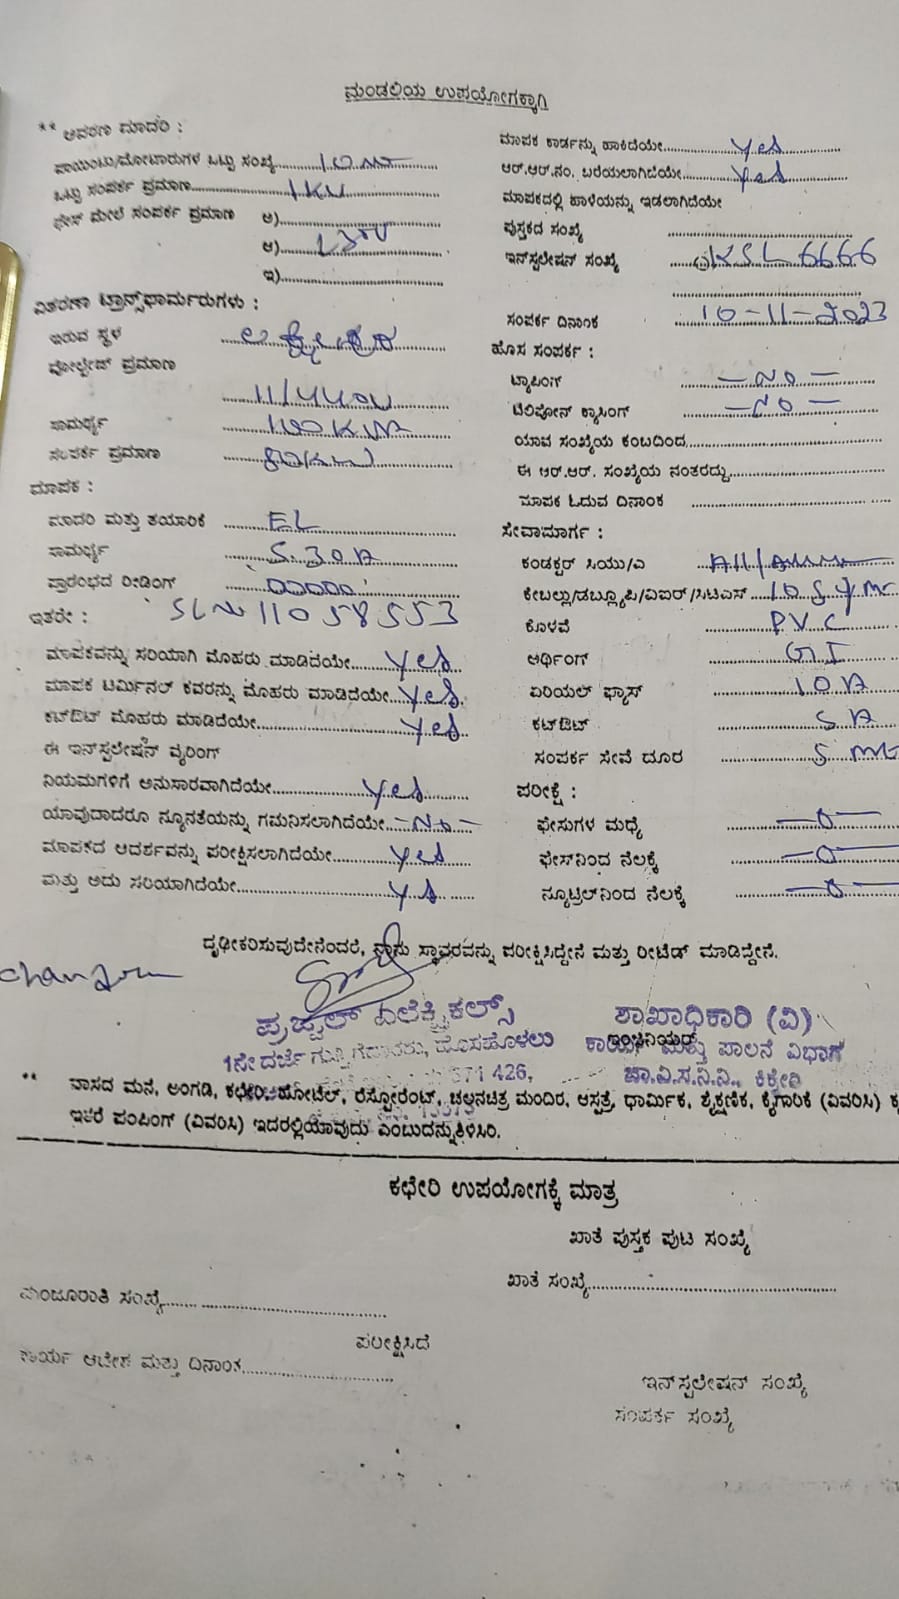 ಮಂಡಲಿಯ ಉಪಯೋಗಕ್ಕಾಗಿ
** ಆವರಣ ಮಾದರಿ :
ಪಾಯಿಂಟು/ಮೋಟಾರುಗಳ ಒಟ್ಟು ಸಂಖ್ಯೆ
ಒಟ್ಟು ಸಂಪರ್ಕ ಪ್ರಮಾಣ 1KW
ಫೇಸ್ ಮೇಲೆ ಸಂಪರ್ಕ ಪ್ರಮಾಣ ಅ)
ಆ)
ಇ)
ವಿತರಣಾ ಟ್ರಾನ್ಸ್‌ಫಾರ್ಮರುಗಳು :
ಇರುವ ಸ್ಥಳ
ವೋಲ್ಟೇಜ್ ಪ್ರಮಾಣ
11/440V
ಸಾಮರ್ಥ್ಯ 100KVA
ಸಂಪರ್ಕ ಪ್ರಮಾಣ
ಮಾಪಕ :
ಮಾದರಿ ಮತ್ತು ತಯಾರಿಕೆ EL
ಸಾಮರ್ಥ್ಯ 5.30A
ಪ್ರಾರಂಭದ ರೀಡಿಂಗ್ 00000
ಇತರೇ : SL No 11058553
ಮಾಪಕವನ್ನು ಸರಿಯಾಗಿ ಮೊಹರು ಮಾಡಿದೆಯೇ Yes
ಮಾಪಕ ಟರ್ಮಿನಲ್ ಕವರನ್ನು ಮೊಹರು ಮಾಡಿದೆಯೇ Yes
ಕಟ್‌ಔಟ್ ಮೊಹರು ಮಾಡಿದೆಯೇ Yes
ಈ ಇನ್‌ಸ್ಟಲೇಷನ್ ವೈರಿಂಗ್
ನಿಯಮಗಳಿಗೆ ಅನುಸಾರವಾಗಿದೆಯೇ Yes
ಯಾವುದಾದರೂ ನ್ಯೂನತೆಯನ್ನು ಗಮನಿಸಲಾಗಿದೆಯೇ -No-
ಮಾಪಕದ ಆದರ್ಶವನ್ನು ಪರೀಕ್ಷಿಸಲಾಗಿದೆಯೇ Yes
ಮತ್ತು ಅದು ಸರಿಯಾಗಿದೆಯೇ Yes
ಮಾಪಕ ಕಾರ್ಡನ್ನು ಹಾಕಿದೆಯೇ Yes
ಆರ್.ಆರ್.ನಂ. ಬರೆಯಲಾಗಿದೆಯೇ Yes
ಮಾಪಕದಲ್ಲಿ ಹಾಳೆಯನ್ನು ಇಡಲಾಗಿದೆಯೇ
ಪುಸ್ತಕದ ಸಂಖ್ಯೆ
ಇನ್‌ಸ್ಟಲೇಷನ್ ಸಂಖ್ಯೆ KSL6666
ಸಂಪರ್ಕ ದಿನಾಂಕ 10-11-2023
ಹೊಸ ಸಂಪರ್ಕ :
ಟ್ಯಾಪಿಂಗ್ -No-
ಟೆಲಿಫೋನ್ ಕ್ರಾಸಿಂಗ್ -No-
ಯಾವ ಸಂಖ್ಯೆಯ ಕಂಬದಿಂದ
ಈ ಆರ್.ಆರ್. ಸಂಖ್ಯೆಯ ನಂತರದ್ದು
ಮಾಪಕ ಓದುವ ದಿನಾಂಕ
ಸೇವಾಮಾರ್ಗ :
ಕಂಡಕ್ಟರ್ ಸಿಯು/ಎ
ಕೇಬಲ್ಲು/ಡಬ್ಲ್ಯೂಪಿ/ವಿಐಆರ್/ಸಿಟಿಎಸ್
ಕೊಳವೆ PVC
ಅರ್ಥಿಂಗ್ GI
ಏರಿಯಲ್ ಫ್ಯೂಸ್ 10A
ಕಟ್‌ಔಟ್ 5A
ಸಂಪರ್ಕ ಸೇವೆ ದೂರ
ಪರೀಕ್ಷೆ :
ಫೇಸುಗಳ ಮಧ್ಯೆ -0-
ಫೇಸ್‌ನಿಂದ ನೆಲಕ್ಕೆ -0-
ನ್ಯೂಟ್ರಲ್‌ನಿಂದ ನೆಲಕ್ಕೆ -0-
ದೃಢೀಕರಿಸುವುದೇನೆಂದರೆ, ನಾನು ಸ್ಥಾವರವನ್ನು ಪರೀಕ್ಷಿಸಿದ್ದೇನೆ ಮತ್ತು ರೀಟೆಡ್ ಮಾಡಿದ್ದೇನೆ.
ಪ್ರಜ್ವಲ್ ಎಲೆಕ್ಟ್ರಿಕಲ್ಸ್
1ನೇ ದರ್ಜೆ ಗುತ್ತಿಗೆದಾರರು, ಹೊಸಹೊಳಲು
571 426,
ಶಾಖಾಧಿಕಾರಿ (ವಿ)
ಇಂಜಿನಿಯರ್
ಕಾರ್ಯ ಮತ್ತು ಪಾಲನೆ ವಿಭಾಗ
ಚಾ.ವಿ.ಸ.ನಿ.ನಿ., ಕಿಕ್ಕೇರಿ
** ವಾಸದ ಮನೆ, ಅಂಗಡಿ, ಕಛೇರಿ, ಹೋಟೆಲ್, ರೆಸ್ಟೋರೆಂಟ್, ಚಲನಚಿತ್ರ ಮಂದಿರ, ಆಸ್ಪತ್ರೆ, ಧಾರ್ಮಿಕ, ಶೈಕ್ಷಣಿಕ, ಕೈಗಾರಿಕೆ (ವಿವರಿಸಿ)
ಇತರೆ ಪಂಪಿಂಗ್ (ವಿವರಿಸಿ) ಇದರಲ್ಲಿಯಾವುದು ಎಂಬುದನ್ನು ತಿಳಿಸಿರಿ.
ಕಛೇರಿ ಉಪಯೋಗಕ್ಕೆ ಮಾತ್ರ
ಖಾತೆ ಪುಸ್ತಕ ಪುಟ ಸಂಖ್ಯೆ
ಖಾತೆ ಸಂಖ್ಯೆ
ಮಂಜೂರಾತಿ ಸಂಖ್ಯೆ
ಪರೀಕ್ಷಿಸಿದೆ
ಕಾರ್ಯ ಆದೇಶ ಮತ್ತು ದಿನಾಂಕ
ಇನ್‌ಸ್ಟಲೇಷನ್ ಸಂಖ್ಯೆ
ಸಂಪರ್ಕ ಸಂಖ್ಯೆ